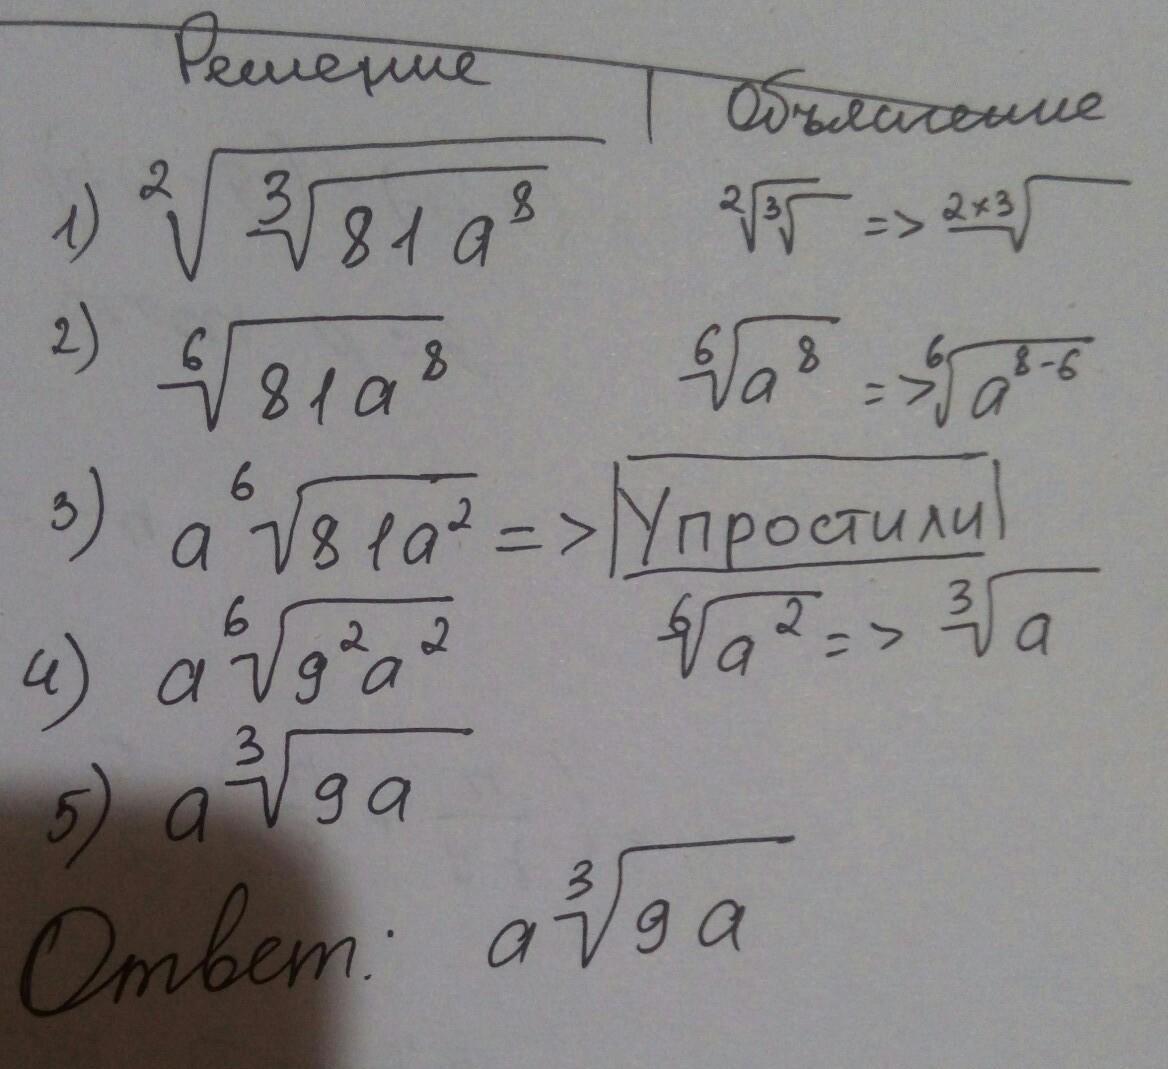 Решение | Объяснение
1) ²√(³√(81a⁸)) ²√³√ => ²ˣ³√
2) ⁶√(81a⁸) ⁶√(a⁸) => ⁶√(a⁸⁻⁶)
3) a ⁶√(81a²) => |Упростили|
4) a ⁶√(9²a²) ⁶√(a²) => ³√a
5) a ³√(9a)
Ответ: a ³√(9a)